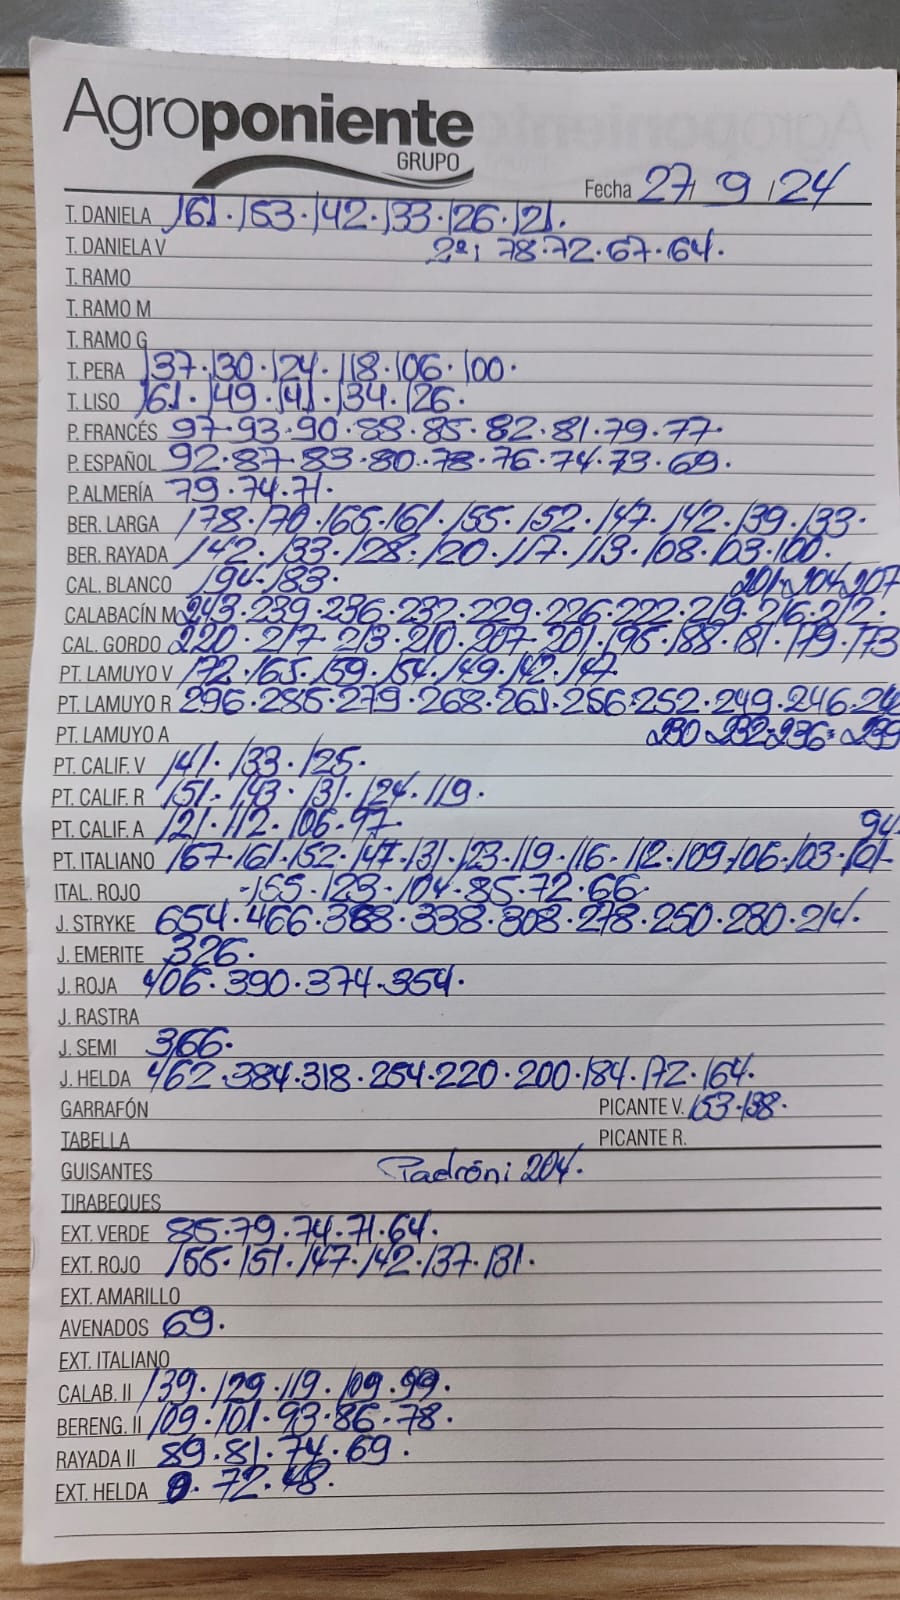 Agroponiente
GRUPO
Fecha 27/9/24
T. DANIELA 161·153·142·133·126·121·
T. DANIELA V 2ª; 78·72·67·64·
T. RAMO
T. RAMO M
T. RAMO G
T. PERA 137·130·124·118·106·100·
T. LISO 161·149·141·134·126·
P. FRANCÉS 97·93·90·88·85·82·81·79·77·
P. ESPAÑOL 92·87·83·80·78·76·74·73·69·
P. ALMERÍA 79·74·71·
BER. LARGA 178·170·165·161·155·152·147·142·139·133·
BER. RAYADA 142·133·128·120·117·113·108·103·100·
CAL. BLANCO 194·183· 201·204·207
CALABACÍN M 243·239·236·232·229·226·222·219·216·212·
CAL. GORDO 220·217·213·210·207·201·195·188·181·179·173
PT. LAMUYO V 172·165·159·154·149·142·147
PT. LAMUYO R 296·285·279·268·261·256·252·249·246·24
PT. LAMUYO A 230·232·236·239
PT. CALIF. V 141·133·125·
PT. CALIF. R 151·143·131·124·119·
PT. CALIF. A 121·112·106·97· 94
PT. ITALIANO 167·161·152·147·131·123·119·116·112·109·106·103·101·
ITAL. ROJO -155·123·104·85·72·66·
J. STRYKE 654·466·388·338·308·278·250·280·214·
J. EMERITE 326·
J. ROJA 406·390·374·354·
J. RASTRA
J. SEMI 366·
J. HELDA 462·384·318·254·220·200·184·172·164·
GARRAFÓN PICANTE V. 153·138·
TABELLA PICANTE R.
GUISANTES Padrón; 204·
TIRABEQUES
EXT. VERDE 85·79·74·71·64·
EXT. ROJO 155·151·147·142·137·131·
EXT. AMARILLO
AVENADOS 69·
EXT. ITALIANO
CALAB. II 139·129·119·109·99·
BERENG. II 109·101·93·86·78·
RAYADA II 89·81·74·69·
EXT. HELDA 72·48·